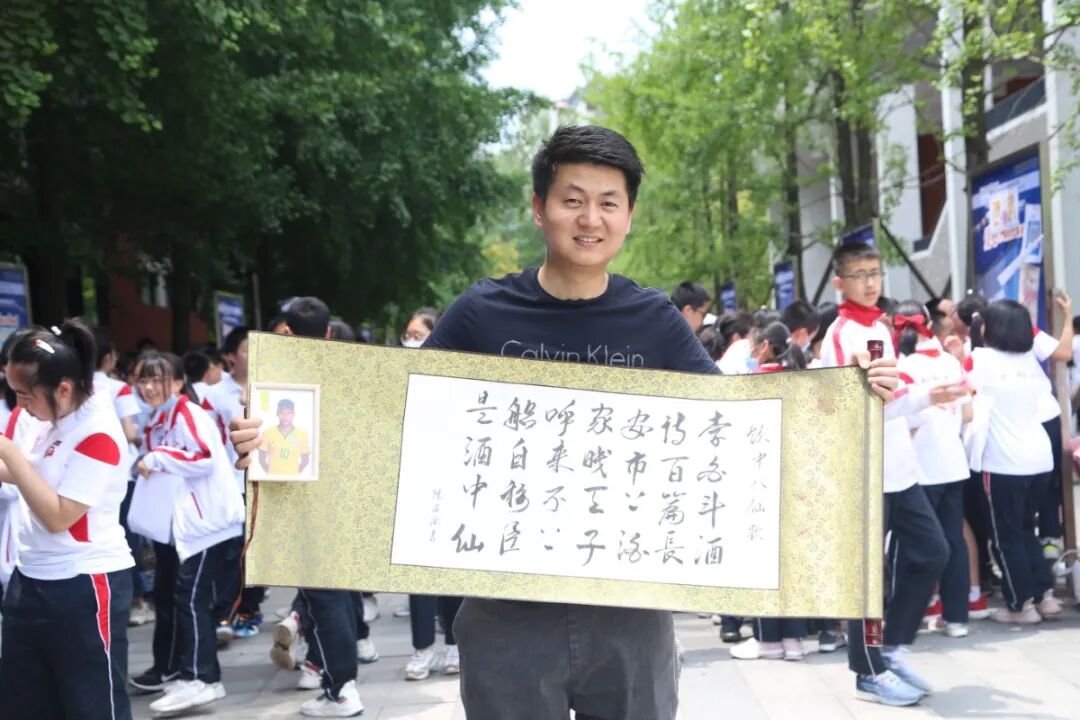 饮中八仙歌
李白斗酒
诗百篇長
安市上酒
家眠天子
呼来不上
船自称臣
是酒中仙
Calvin Klein
10